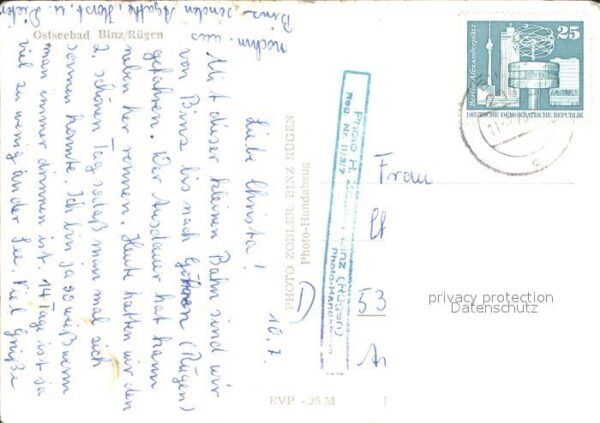 Ostseebad Binz/Rügen
10.7.
Liebe Christa!
Mit dieser kleinen Bahn sind wir
von Binz bis nach Göhren (Rügen)
gefahren. Der Ausdauer hat kann
neben her rennen. Heute hatten wir den
2. schönen Tag, sodaß man mal sich
sonnen konnte. Ich bin ja so weiß wenn
man immer drinnen ist. 14 Tag ist ja
viel zu wenig an der See. Viel Grüße
nochm. aus
Binz senden Agathe, Horst u.
PHOTO ZOBLER, BINZ RÜGEN
Photo-Handabzug
EVP -,23 M
Photo H. Binz (Rügen)
Reg. Nr. II/3/7
Photo-Handabzug
Berlin-Alexanderplatz
25
DEUTSCHE DEMOKRATISCHE REPUBLIK
Frau
53
privacy protection
Datenschutz